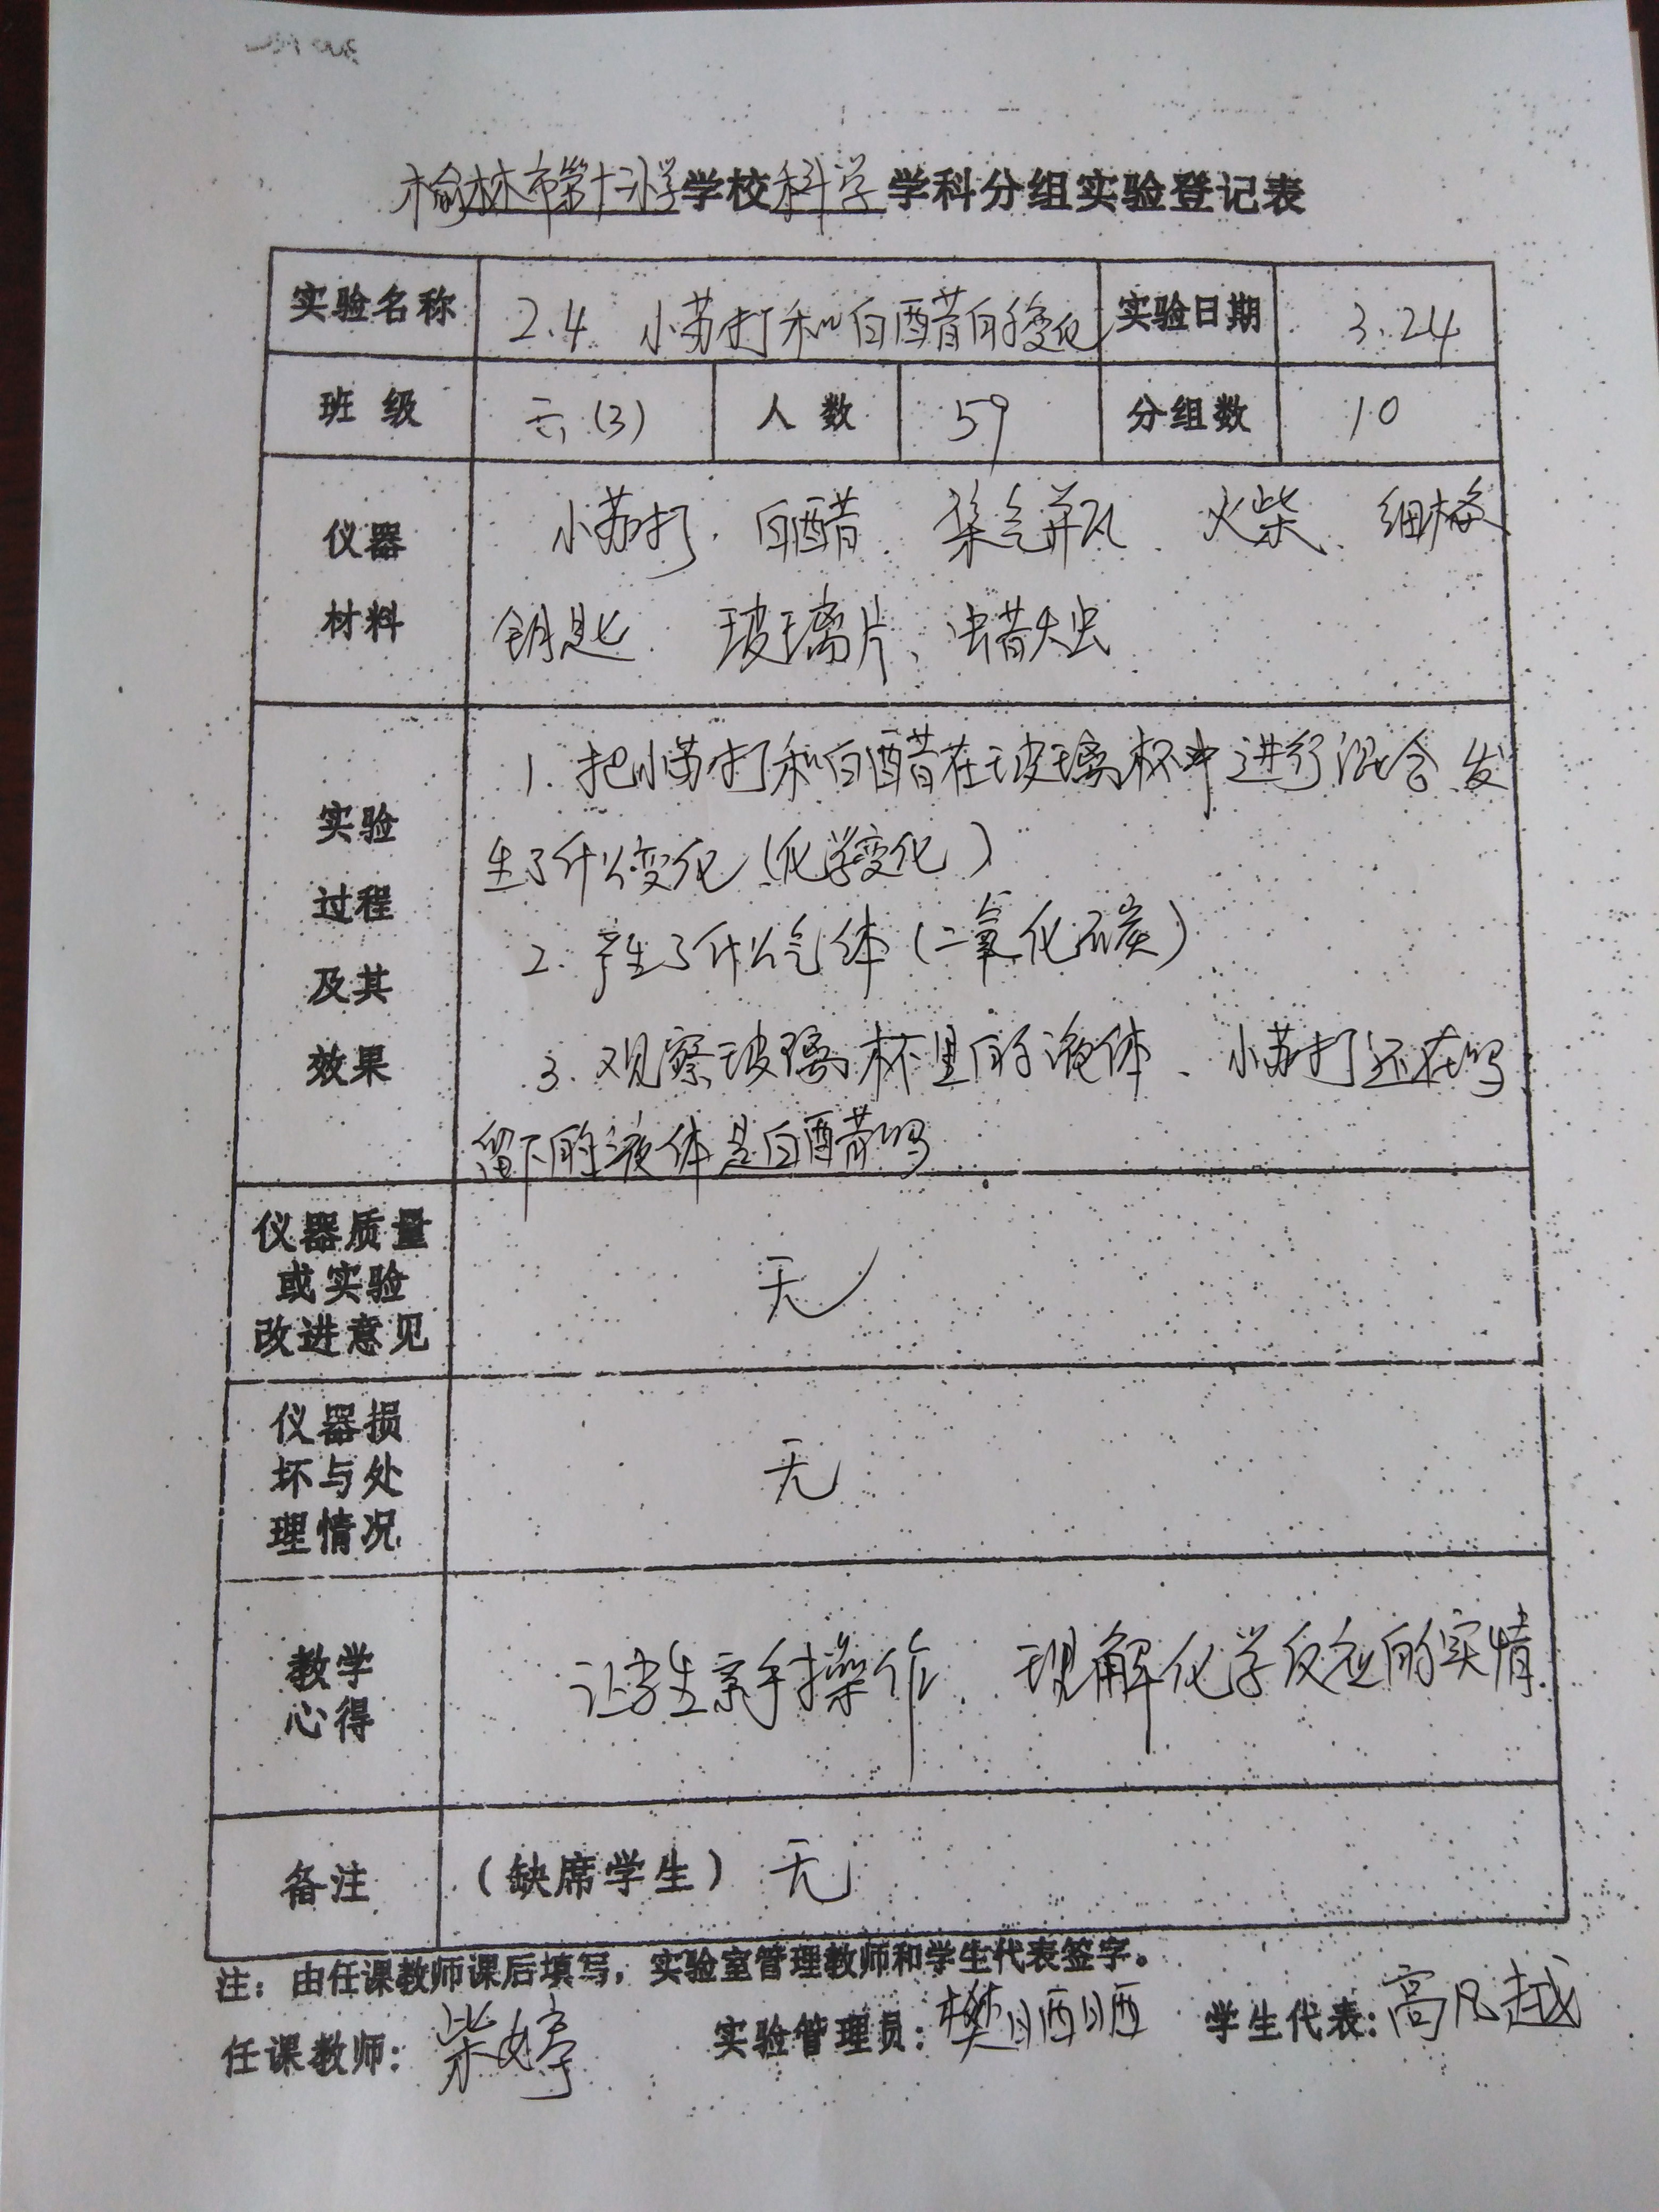 榆林市第十二小学学校科学学科分组实验登记表
实验名称 2.4 小苏打和白醋的变化 实验日期 3.24
班级 六(3) 人数 59 分组数 10
仪器材料
小苏打、白醋、集气瓶、火柴、细木条
钥匙、玻璃片、蜡烛
实验过程及其效果
1. 把小苏打和白醋在玻璃杯中进行混合,发
生了什么变化(化学变化)
2. 产生了什么气体(二氧化碳)
3. 观察玻璃杯里的液体、小苏打还在吗
留下的液体是白醋吗
仪器质量
或实验
改进意见
无
仪器损
坏与处
理情况
无
教学
心得
让学生亲手操作、理解化学反应的实情.
备注 (缺席学生) 无
注:由任课教师课后填写,实验室管理教师和学生代表签字。
任课教师:柴婷 实验管理员:樊晒晒 学生代表:高凡越